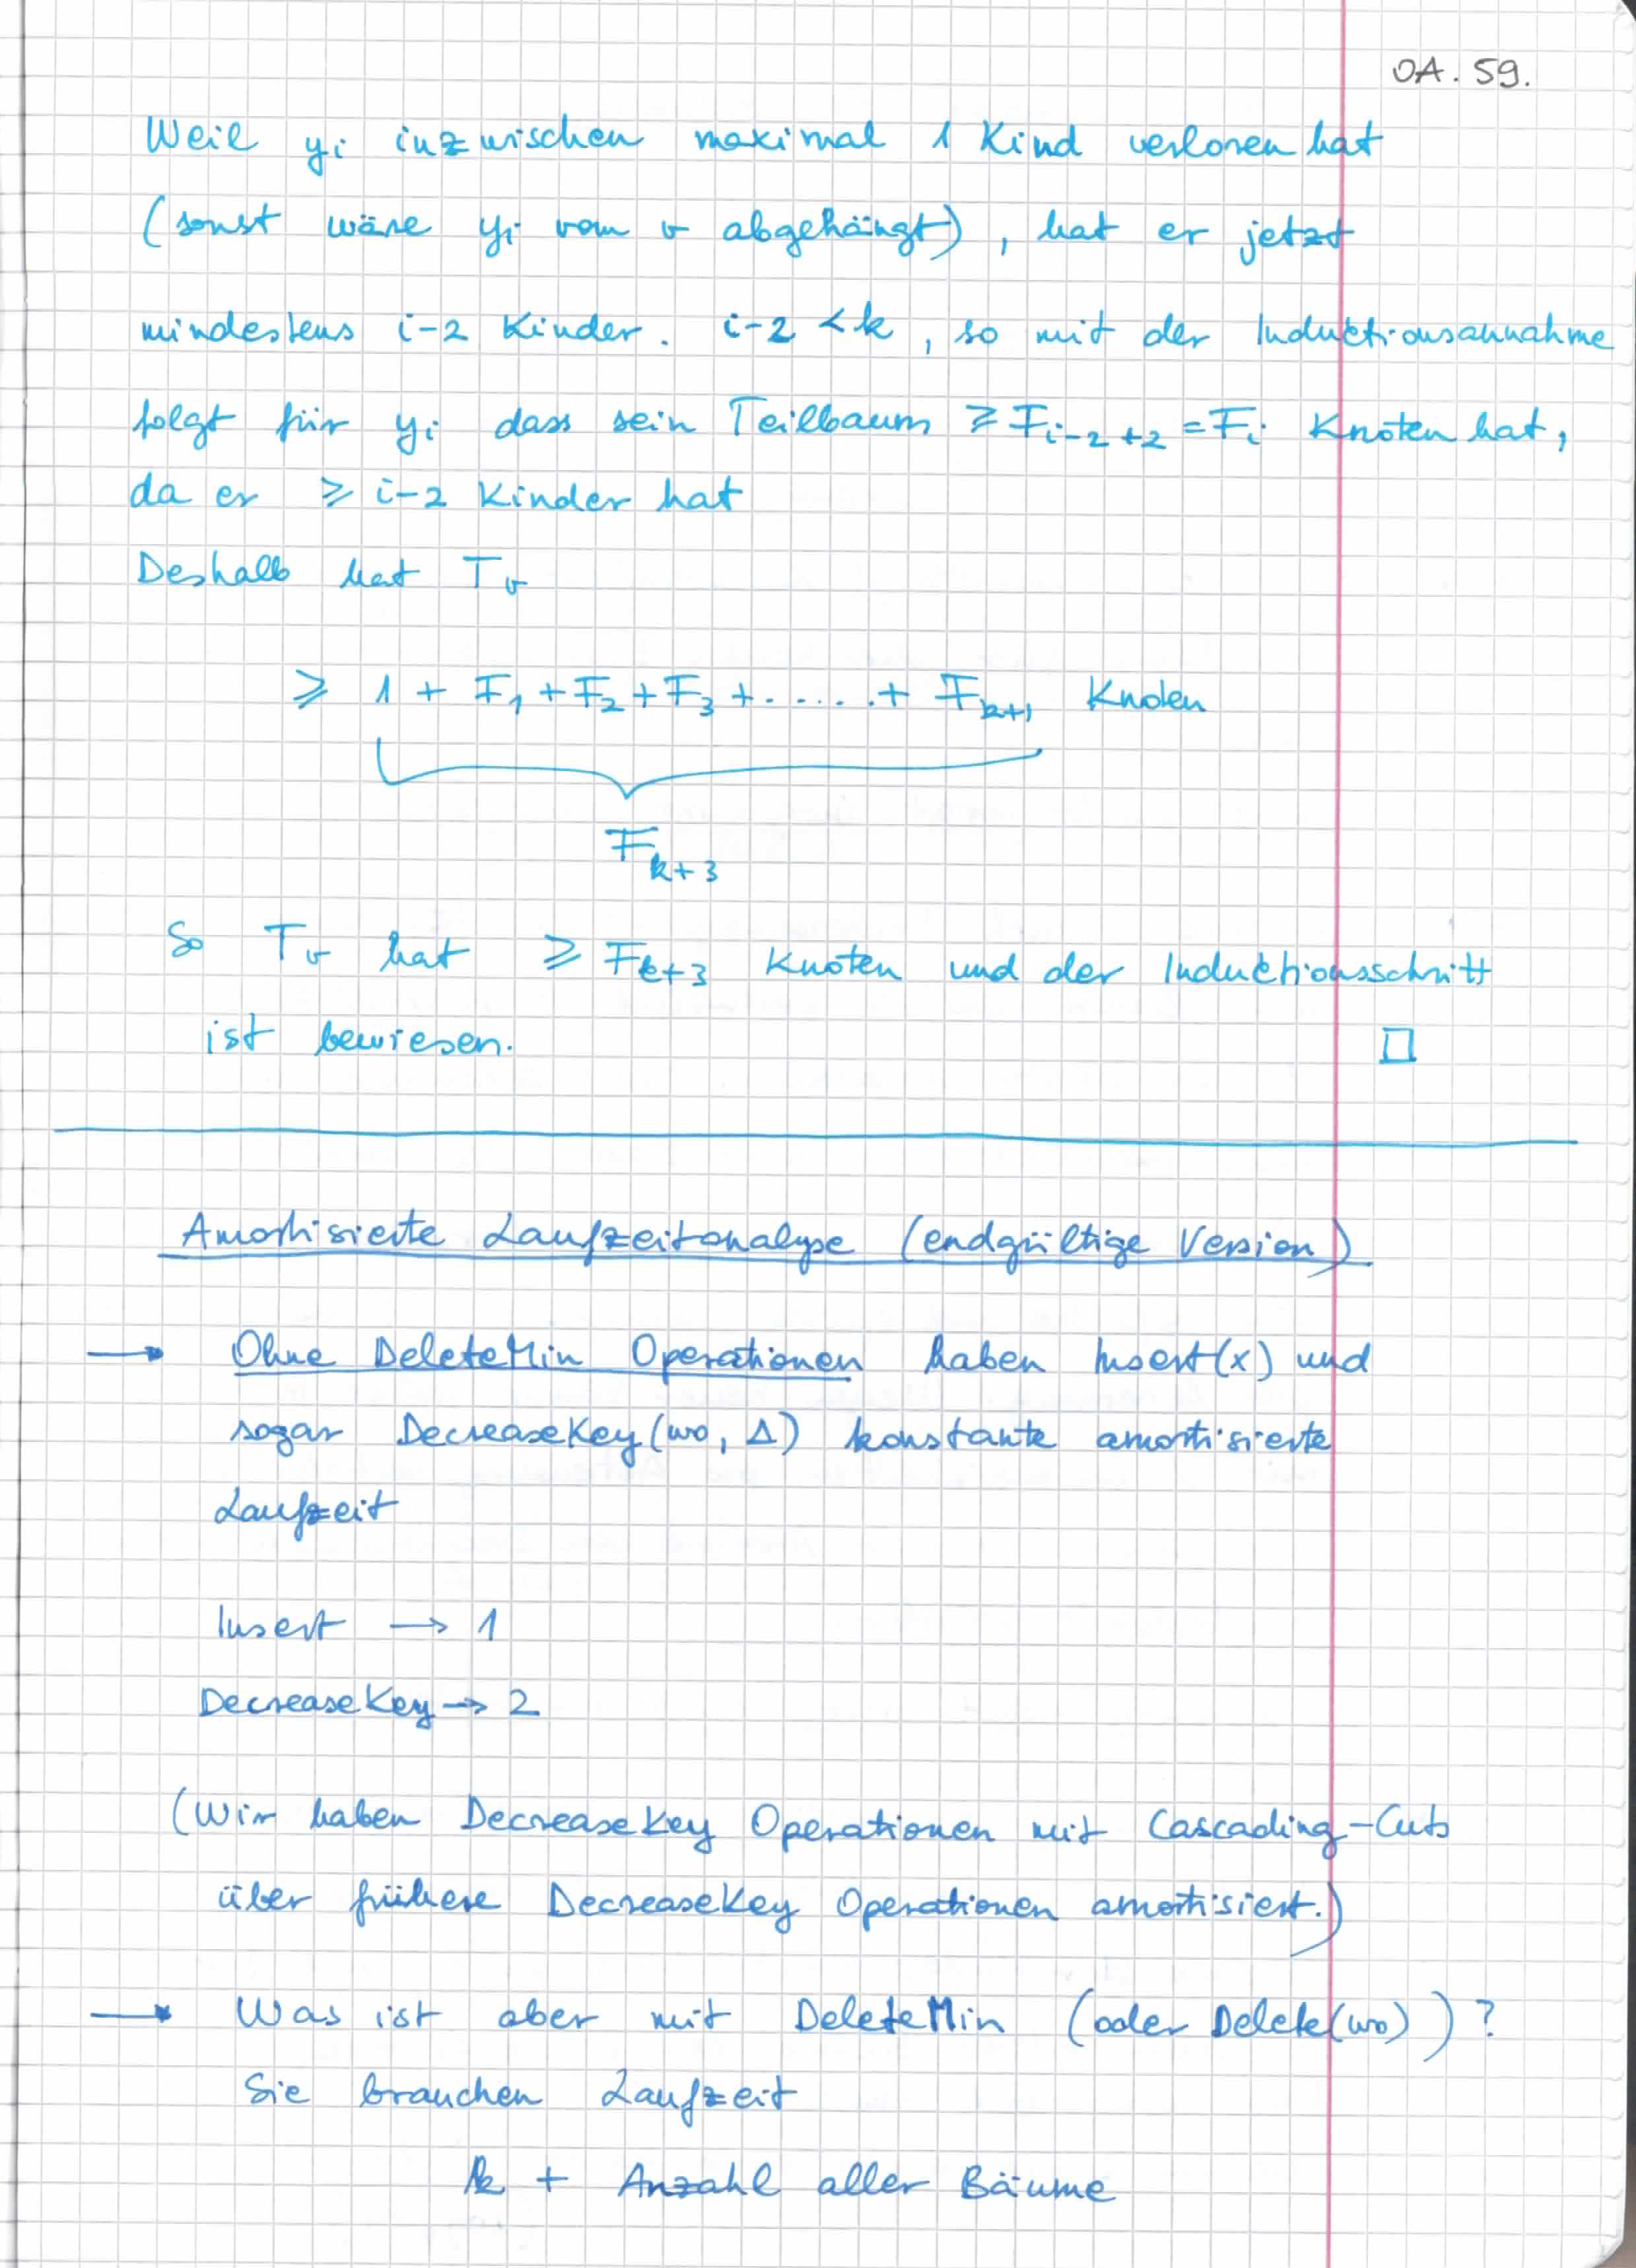 OA. 59.
Weil yᵢ inzwischen maximal 1 Kind verloren hat
(sonst wäre yᵢ vom v abgehängt), hat er jetzt
mindestens i-2 Kinder. i-2 < k, so mit der Induktionsannahme
folgt für yᵢ dass sein Teilbaum ≥ F_{i-2+2} = F_i Knoten hat,
da er ≥ i-2 Kinder hat
Deshalb hat T_v
≥ 1 + F_1 + F_2 + F_3 + ...... + F_{k+1} Knoten
F_{k+3}
So T_v hat ≥ F_{k+3} Knoten und der Induktionsschritt
ist bewiesen. □
Amortisierte Laufzeitanalyse (endgültige Version)
→ Ohne DeleteMin Operationen haben Insert(x) und
sogar DecreaseKey(wo, Δ) konstante amortisierte
Laufzeit
Insert → 1
DecreaseKey → 2
(Wir haben DecreaseKey Operationen mit Cascading-Cuts
über frühere DecreaseKey Operationen amortisiert.)
→ Was ist aber mit DeleteMin (oder Delete(wo))?
Sie brauchen Laufzeit
k + Anzahl aller Bäume